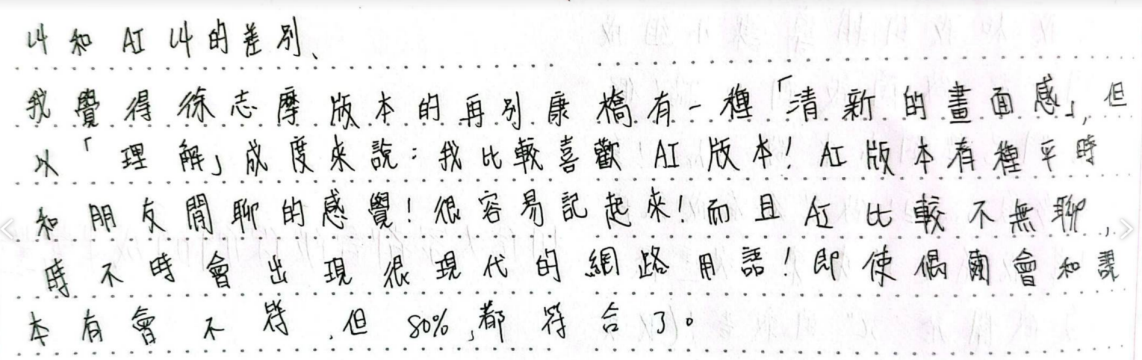 叫和 AI 叫的差別、
我覺得徐志摩版本的再別康橋有一種「清新的畫面感」,但
以「理解」成度來說:我比較喜歡 AI 版本! AI 版本有種平時
和朋友閒聊的感覺!很容易記起來!而且 AI 比較不無聊,
時不時會出現很現代的網路用語!即使偶爾會和課
本有會不符,但 80%,都符合了。